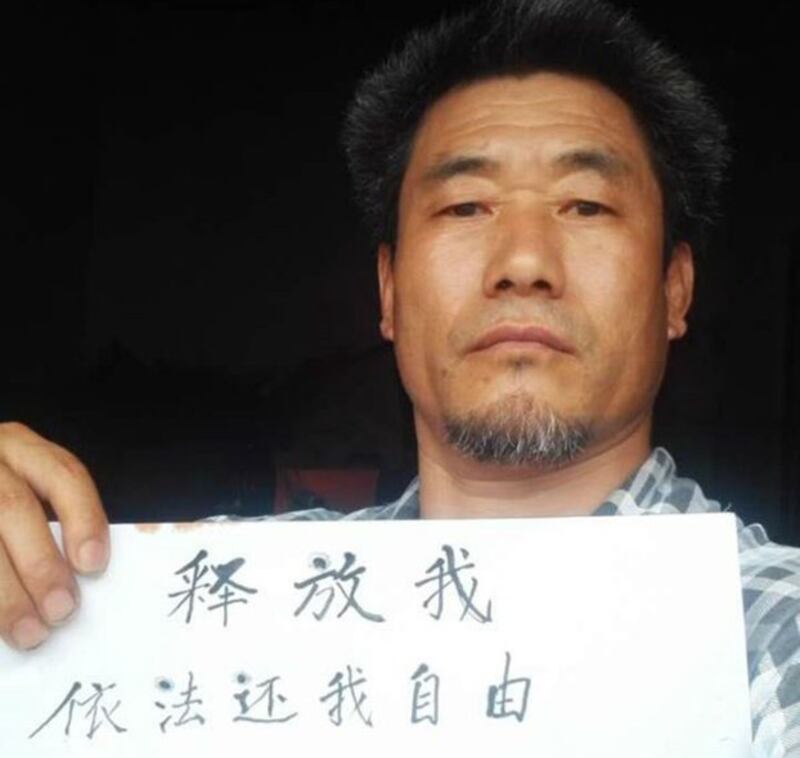 释放我
依法还我自由